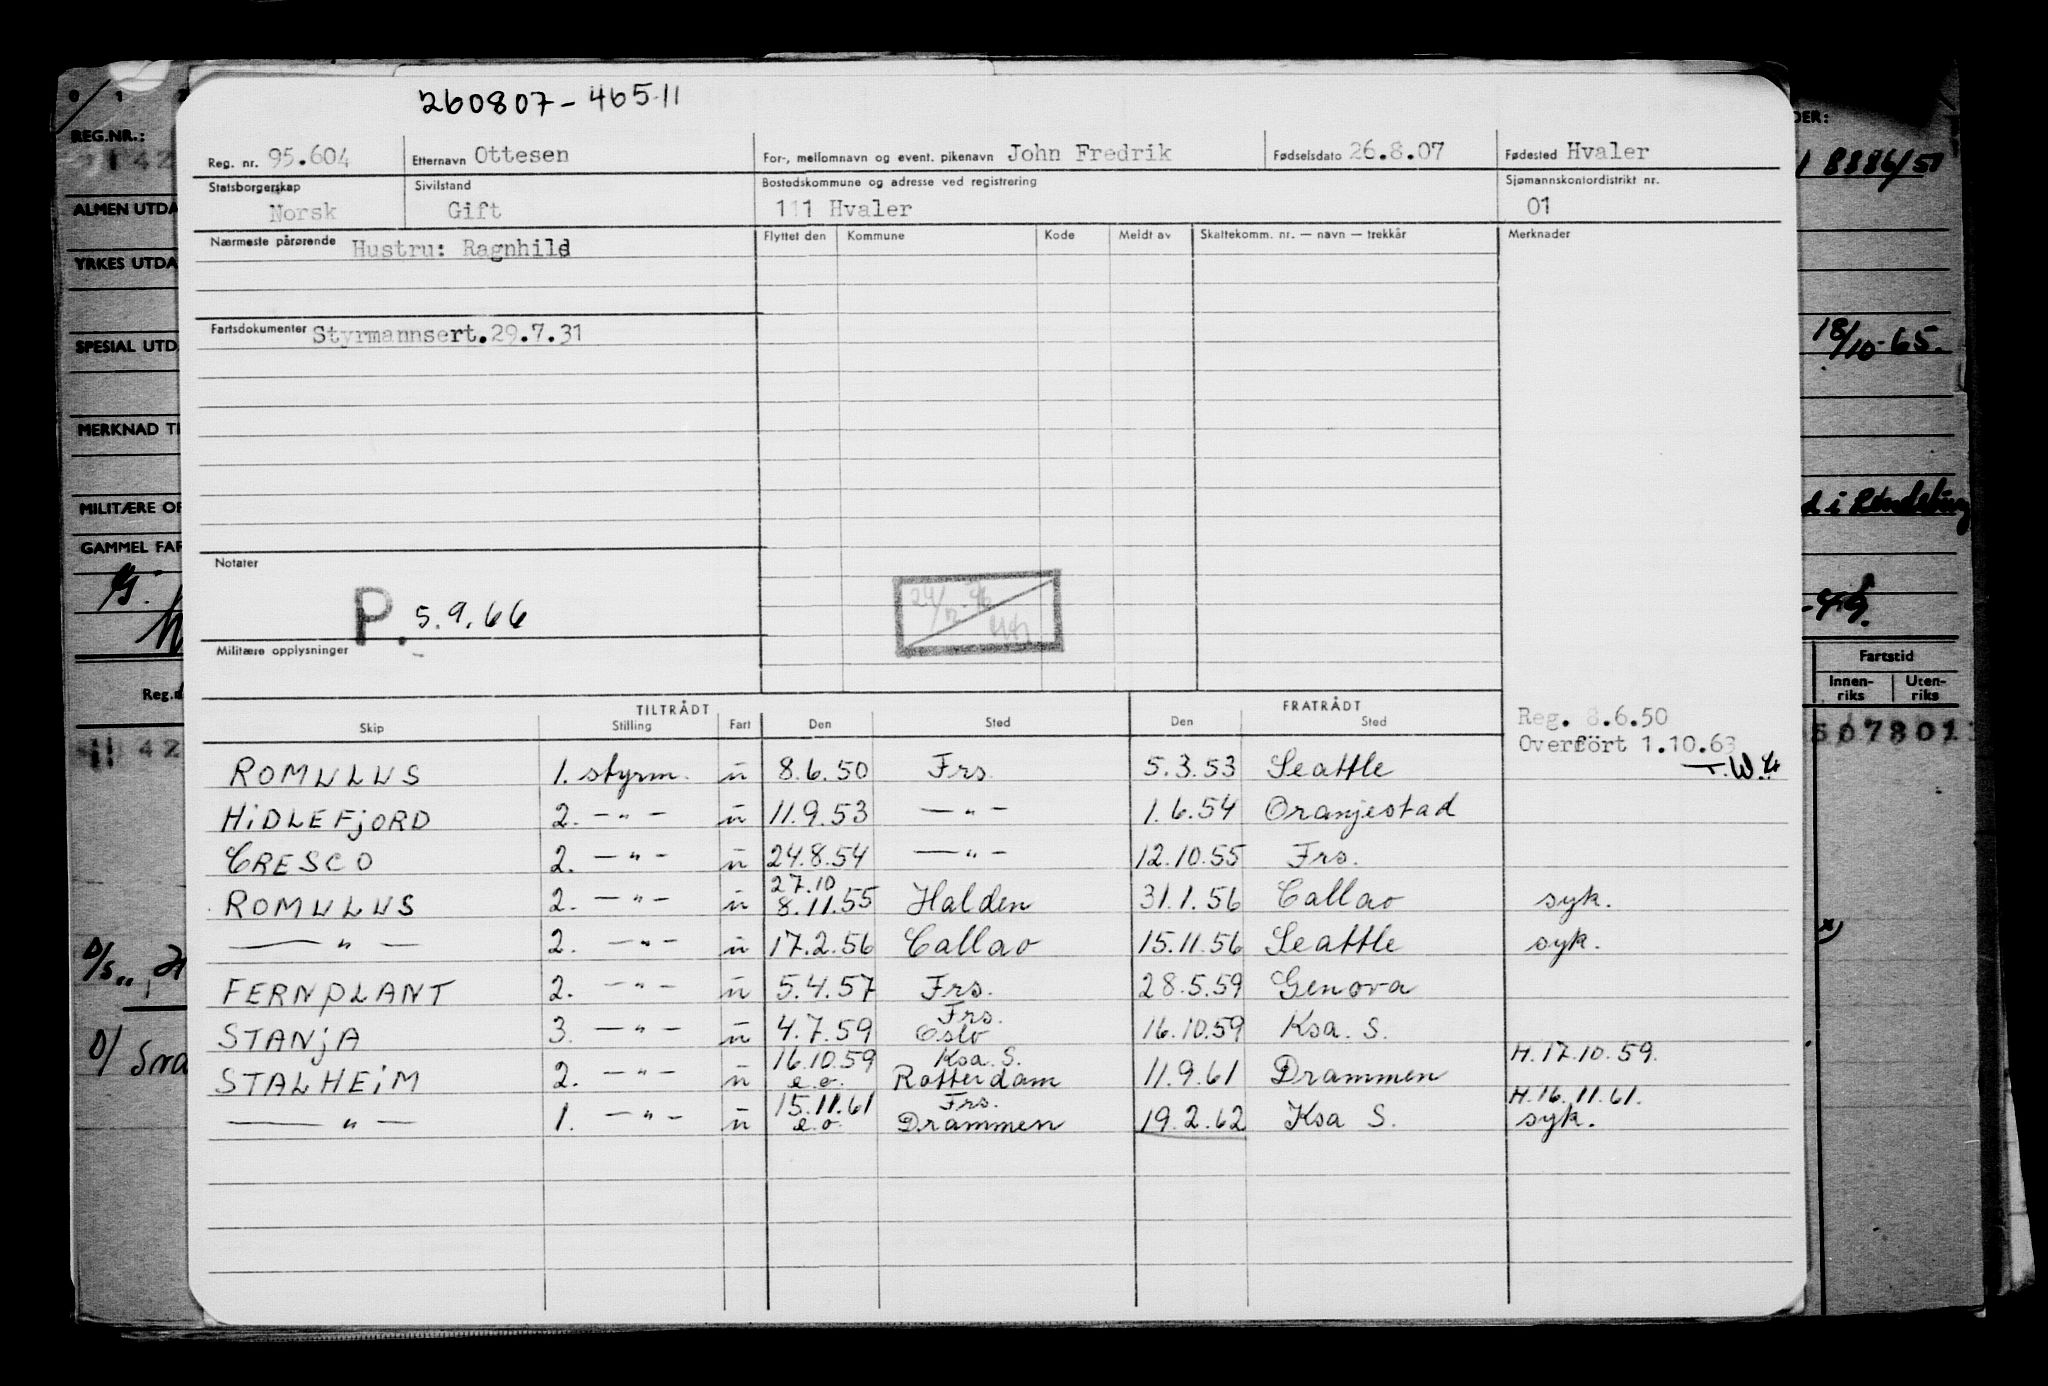 260807-46511
REG.NR.:
Reg. nr. 95.604 Etternavn Ottesen For-, mellomnavn og event. pikenavn John Fredrik Fødselsdato 26.8.07 Fødested Hvaler
Statsborgerskap Sivilstand Bostedskommune og adresse ved registrering Sjømannskontordistrikt nr.
Norsk Gift 111 Hvaler 01
8886/51
ALMEN UTDA
Nærmeste pårørende Hustru: Ragnhild Flyttet den Kommune Kode Meldt av Skattekomm. nr. — navn — trekkår Merknader
YRKES UTDA
Fartsdokumenter Styrmannsert.29.7.31
SPESIAL UTD.
18/10-65.
MERKNAD TI
MILITÆRE OP
GAMMEL FAR
Notater
P. 5.9.66
Militære opplysninger
Fartstid
Innen-riks Uten-riks
TILTRÅDT FRATRÅDT
Skip Stilling Fart Den Sted Den Sted
Reg. 8.6.50
Overført 1.10.63
ROMULUS 1. styrm. u 8.6.50 Frs. 5.3.53 Seattle
HiDLEFjORD 2. — " — u 11.9.53 — " — 1.6.54 Oranjestad
CRESCO 2. — " — u 24.8.54 — " — 12.10.55 Frs.
27.10
ROMULUS 2. — " — u 8.11.55 Halden 31.1.56 Callao syk.
— " — 2. — " — u 17.2.56 Callao 15.11.56 Seattle syk.
FERNPLANT 2. — " — u 5.4.57 Frs. 28.5.59 Genova
Frs.
STANjA 3. — " — u 4.7.59 Oslo 16.10.59 Ksa. S.
16.10.59 Ksa. S. H.17.10.59.
STALHEiM 2. — " — u e.o. Rotterdam 11.9.61 Drammen
15.11.61 Frs. H.16.11.61.
— " — 1. — " — u e.o. Drammen 19.2.62 Ksa S. syk.